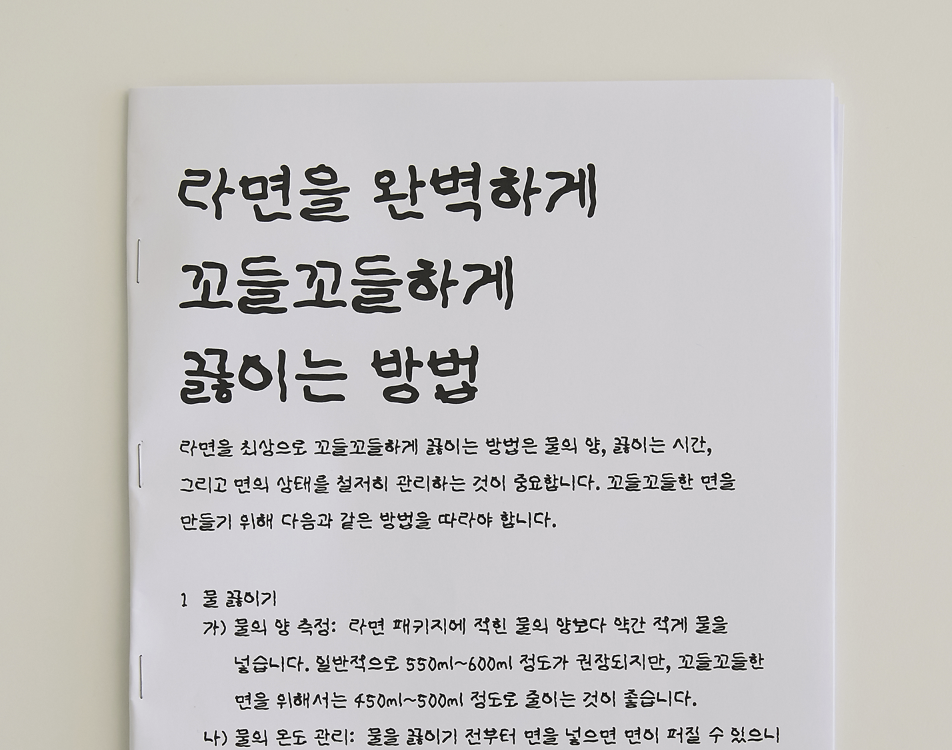 라면을 완벽하게
꼬들꼬들하게
끓이는 방법
라면을 최상으로 꼬들꼬들하게 끓이는 방법은 물의 양, 끓이는 시간,
그리고 면의 상태를 철저히 관리하는 것이 중요합니다. 꼬들꼬들한 면을
만들기 위해 다음과 같은 방법을 따라야 합니다.
1 물 끓이기
가) 물의 양 측정: 라면 패키지에 적힌 물의 양보다 약간 적게 물을
넣습니다. 일반적으로 550ml~600ml 정도가 권장되지만, 꼬들꼬들한
면을 위해서는 450ml~500ml 정도로 줄이는 것이 좋습니다.
나) 물의 온도 관리: 물을 끓이기 전부터 면을 넣으면 면이 퍼질 수 있으니